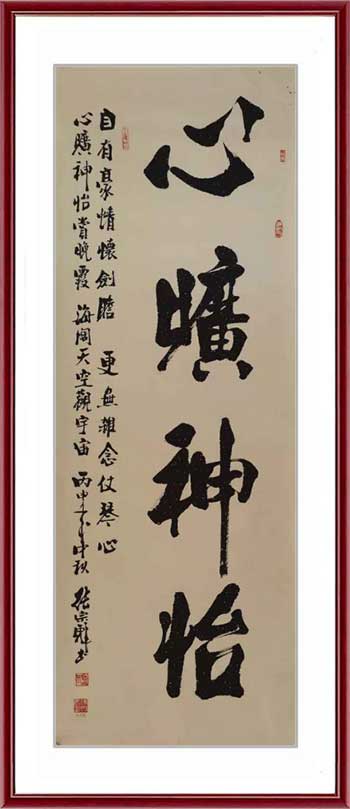 心曠神怡
自有豪情懷劍膽 更無雜念仗琴心
心曠神怡賞晚霞 海闊天空觀宇宙 丙申年中秋